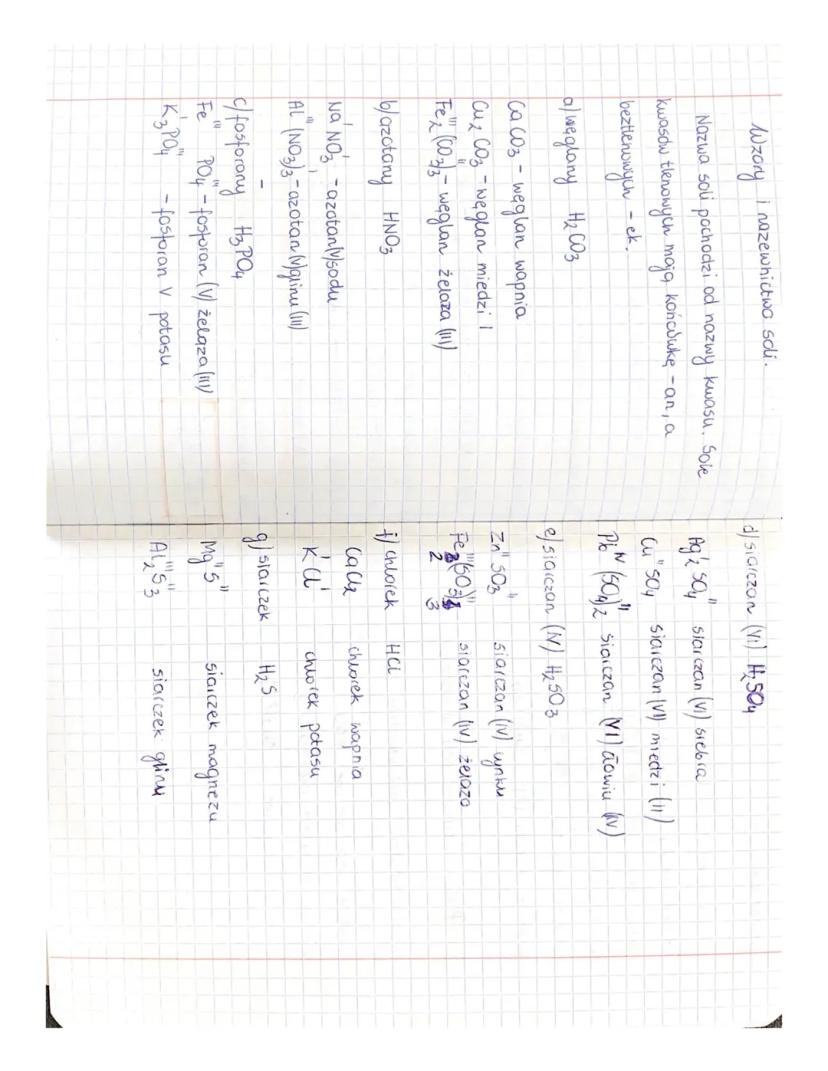 Wzory i nazewnictwo soli.
Nazwa soli pochodzi od nazwy kwasu. Sole
kwasów tlenowych mają końcówkę -an, a
beztlenowych - ek.
a) węglany H₂CO₃
CaCO₃ - węglan wapnia
Cu₂CO₃ - węglan miedzi I
Fe₂(CO₃)₃ - węglan żelaza (III)
b) azotany HNO₃
NaᴵNO₃ᴵ - azotan(V)sodu
Alᴵᴵᴵ(NO₃)₃ᴵ - azotan(V)glinu (III)
c) fosforany H₃PO₄
Feᴵᴵᴵ PO₄ᴵᴵᴵ - fosforan (V) żelaza (III)
K₃ᴵPO₄ᴵᴵᴵ - fosforan V potasu
d) siarczan (VI) H₂SO₄
Ag₂ᴵSO₄ᴵᴵ siarczan (VI) srebra
Cuᴵᴵ SO₄ siarczan (VI) miedzi (II)
Pbᴵⱽ (SO₄)₂ᴵᴵ siarczan (VI) ołowiu (IV)
e) siarczan (IV) H₂SO₃
Znᴵᴵ SO₃ᴵᴵ siarczan (IV) cynku
Fe₂ᴵᴵᴵ(SO₃)₃ᴵᴵ siarczan (IV) żelaza
f) chlorek HCl
CaCl₂ chlorek wapnia
KᴵClᴵ chlorek potasu
g) siarczek H₂S
MgᴵᴵSᴵᴵ siarczek magnezu
Al₂ᴵᴵᴵS₃ᴵᴵ siarczek glinu